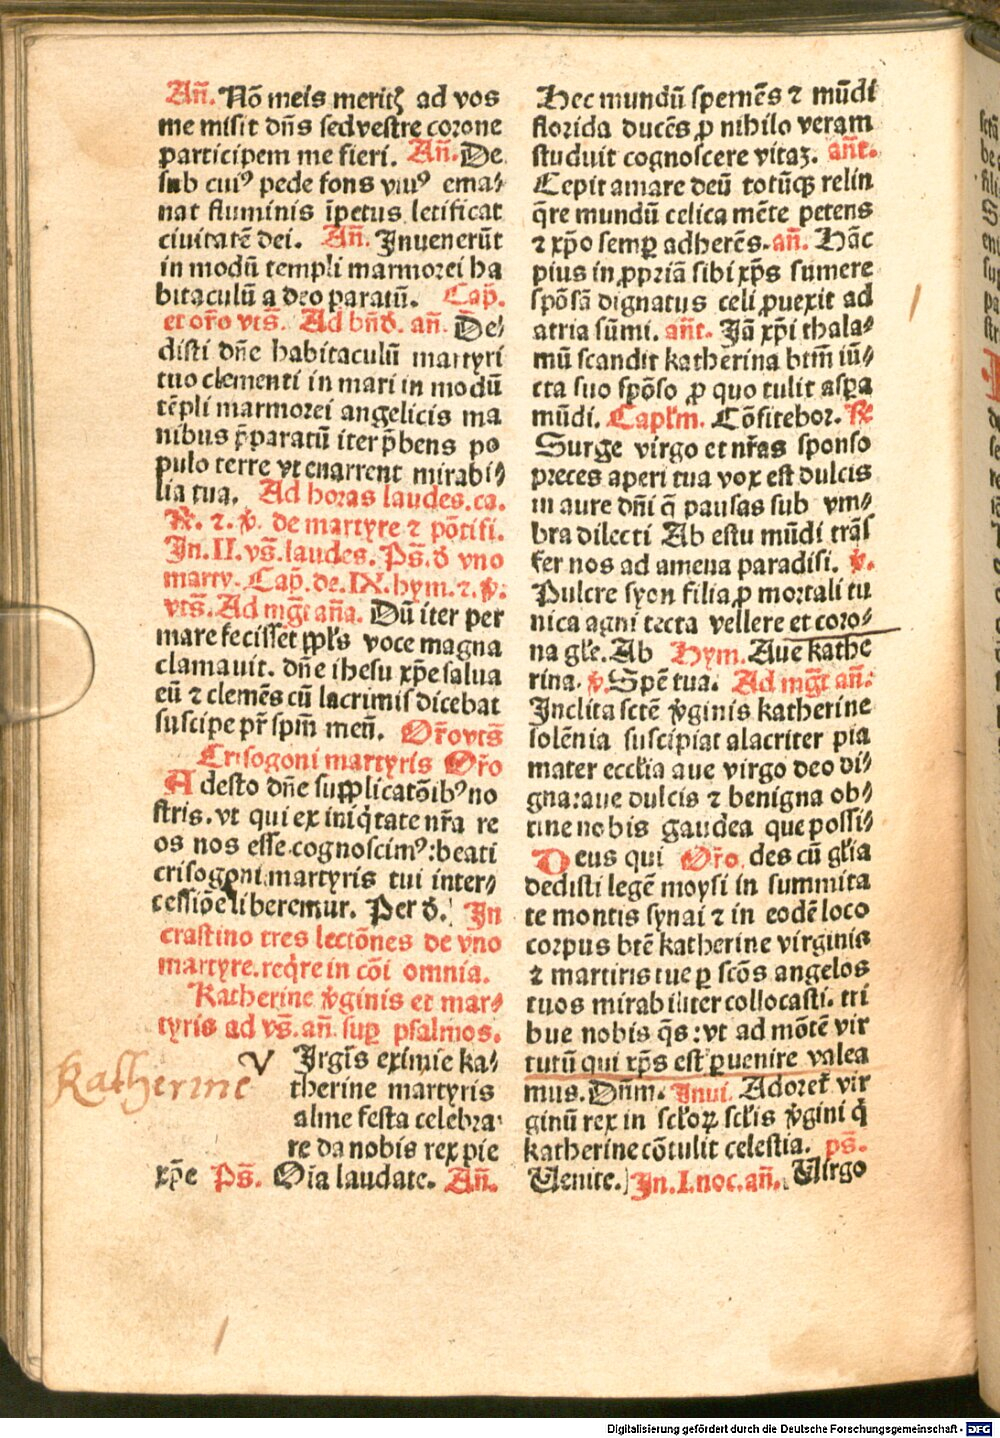 Añ. Nō meis meritꝭ ad vos
me misit dn̄s sed vestre corone
participem me fieri. Añ. De
sub cuiꝰ pede fons viuꝰ ema⸗
nat fluminis īpetus letificat
ciuitatē dei. Añ. Inuenerūt
in modū templi marmorei ha
bitaculū a deo paratū. Cap̄.
et or̄o vts̄. Ad bn̄d. añ. De⸗
disti dn̄e habitaculū martyri
tuo clementi in mari in modū
tēpli marmorei angelicis ma
nibus p̄paratū iter p̄bens po
pulo terre vt enarrent mirabi⸗
lia tua. Ad horas laudes. ca.
℟. ⁊. ℣. de martyre ⁊ pōtifi.
In. II. vs̄. laudes. Ps̄. d vno
marty. Cap̄. de. IX. hym. ⁊. ℣.
vts̄. Ad mḡt aña. Dū iter per
mare fecisset ppl̄s voce magna
clamauit. dn̄e ihesu xp̄e salua
eū ⁊ clemēs cū lacrimis dicebat
suscipe pr̄ spm̄ meū. Or̄o vts̄
Crisogoni martyris Or̄o
Adesto dn̄e supplicatōibꝰ no
stris. vt qui ex iniq̇tate nr̄a re
os nos esse cognoscimꝰ: beati
crisogoni martyris tui inter⸗
cessiōe liberemur. Per d. In
crastino tres lectōnes de vno
martyre. req̇re in cōi omnia.
Katherine v̇ginis et mar⸗
tyris ad vs̄. añ. suꝑ psalmos.
Katherine
VIrgīs eximie ka⸗
therine martyris
alme festa celebra⸗
re da nobis rex pie
xp̄e Ps̄. Oīa laudate. Añ.
Hec mundū spernēs ⁊ mūdi
florida ducēs ꝓ nihilo veram
studuit cognoscere vitaꝫ. añt.
Cepit amare deū totūqꝫ relin
q̄re mundū celica mēte petens
⁊ xp̄o semꝑ adherēs. añ. Hāc
pius in ꝓpriā sibi xp̄s sumere
spōsā dignatus celi ꝓuexit ad
atria sūmi. añt. Iā xp̄i thala⸗
mū scandit katherina btm̄ iū⸗
cta suo spōso ꝓ quo tulit asꝑa
mūdi. Capl̄m. Cōfitebor. ℟
Surge virgo et nr̄as sponso
preces aperi tua vox est dulcis
in aure dn̄i q̄ pausas sub vm⸗
bra dilecti Ab estu mūdi trās
fer nos ad amena paradisi. ℣.
Pulcre syon filia ꝓ mortali tu
nica agni tecta vellere et coro⸗
na gl̄e. Ab Hym. Aue kathe
rina. ℣. Spē tua. Ad mḡt añ:
Inclita sctē v̇ginis katherine
solēnia suscipiat alacriter pia
mater eccl̄ia aue virgo deo di⸗
gna: aue dulcis ⁊ benigna ob⸗
tine nobis gaudea que possi⸗
Deus qui Or̄o. des cū gl̄ia
dedisti legē moysi in summita
te montis synai ⁊ in eodē loco
corpus btē katherine virginis
⁊ martiris tue ꝑ scōs angelos
tuos mirabiliter collocasti. tri
bue nobis q̄s: vt ad mōtē vir
tutū qui xp̄s est ꝑuenire valea
mus. Dn̄m. Inui. Adoret vir
ginū rex in scl̄oꝝ scl̄is v̇gini q̇
katherine cōtulit celestia. ps̄.
Uenite. In. I. noc. añ. Uirgo
Digitalisierung gefördert durch die Deutsche Forschungsgemeinschaft - DFG